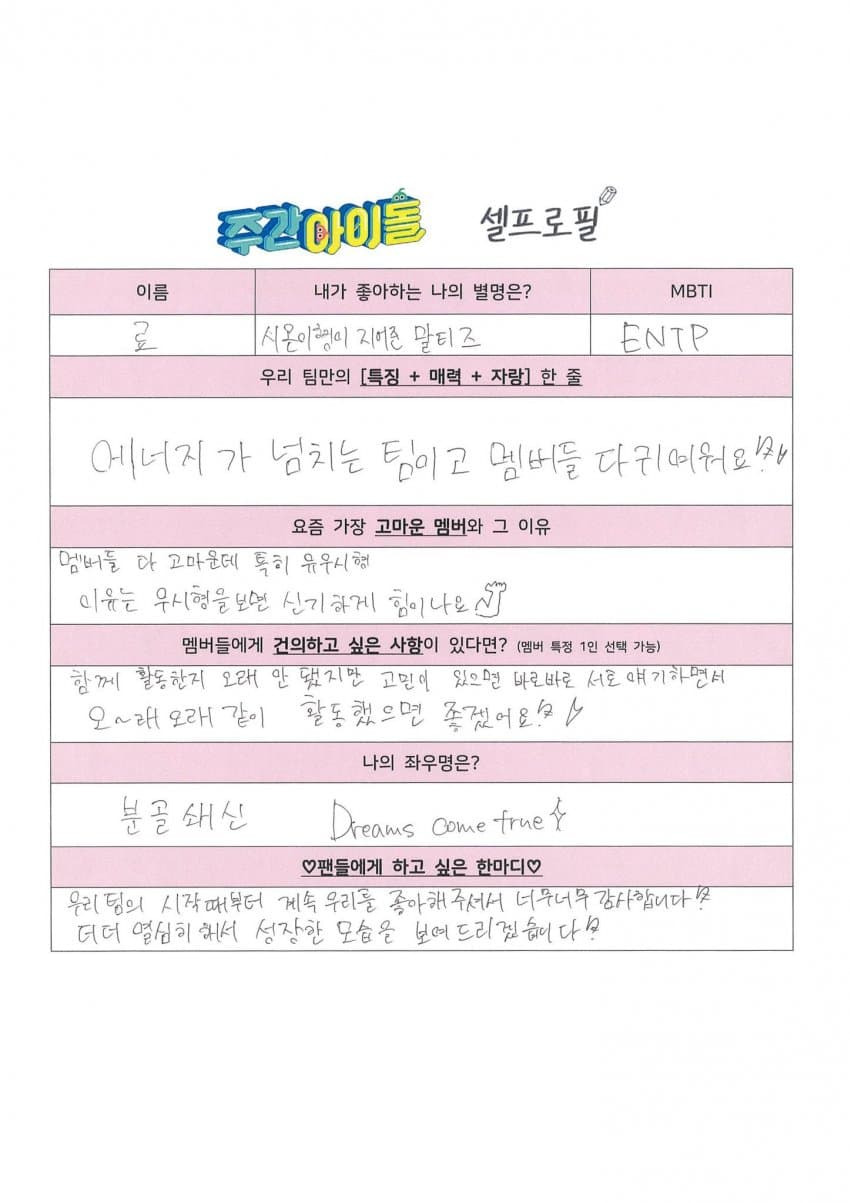 주간아이돌 셀프로필
이름 내가 좋아하는 나의 별명은? MBTI
료 시온이형이 지어준 말티즈 ENTP
우리 팀만의 [특징 + 매력 + 자랑] 한 줄
에너지가 넘치는 팀이고 멤버들 다 귀여워요!
요즘 가장 고마운 멤버와 그 이유
멤버들 다 고마운데 특히 유우시형
이유는 우시형을보면 신기하게 힘이나요
멤버들에게 건의하고 싶은 사항이 있다면? (멤버 특정 1인 선택 가능)
함께 활동한지 오래 안 됐지만 고민이 있으면 바로바로 서로 얘기하면서
오~래 오래 같이 활동했으면 좋겠어요!
나의 좌우명은?
분골쇄신 Dreams come true
♡팬들에게 하고 싶은 한마디♡
우리팀의 시작때부터 계속 우리를 좋아해주셔서 너무너무 감사합니다!
더더 열심히 해서 성장한 모습을 보여드리겠습니다!